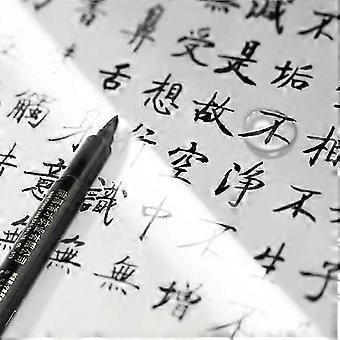 子
相不生不
不垢不淨不增
減是故空中無
受想行識無
鼻舌身意無
觸